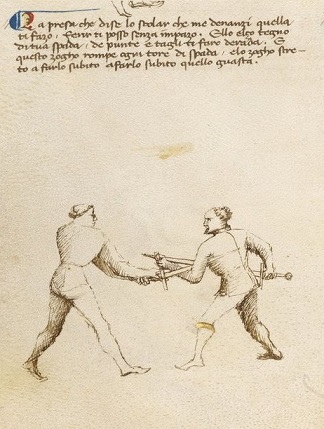 La presa che dise lo scolar che me denançi quella
ti faço, ferir ti posso senza impazo. E llo elço tegno
di tua spada, de punte e tagli ti faro derada. E
questo zogho rompe ogni tore di spada, elo zogho stre-
to a farlo subito a farlo subito quello guasta.